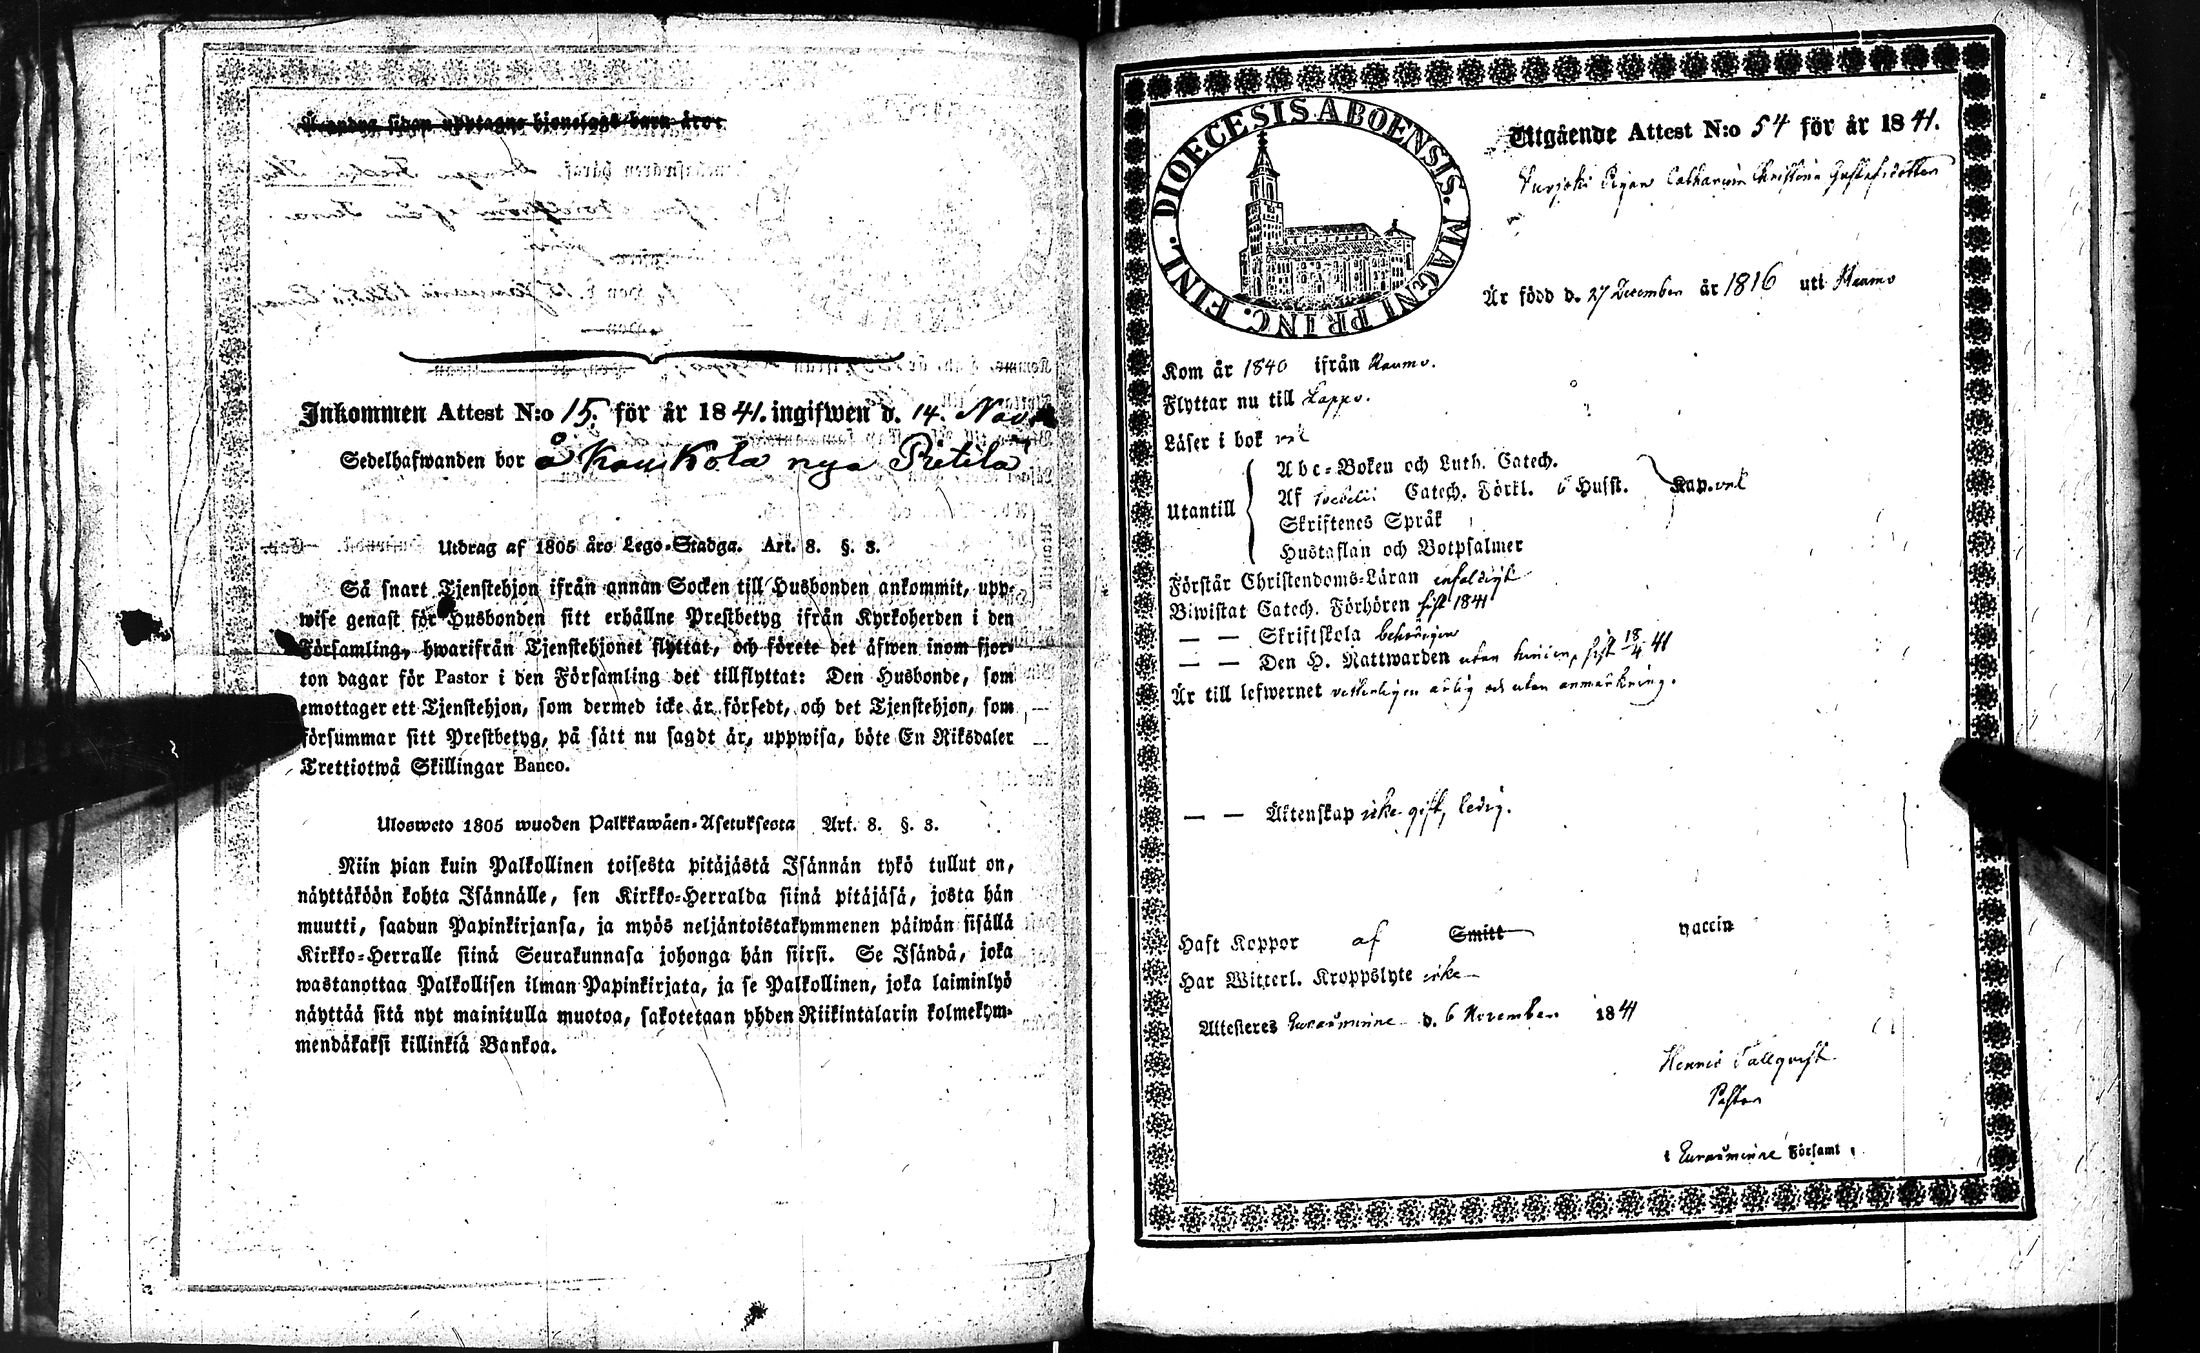 Inkommen Attest N:o 15. för år 1841. ingifwen d. 14. Nov.
Sedelhafwanden bor å Kaukola nya Pietilä
Utdrag af 1805 års Lego-Stadga. Art. 8. §. 3.
Så snart Tjenstehjon ifrån annan Socken till Husbonden ankommit, upp-
wise genast för Husbonden sitt erhållne Prestbetyg ifrån Kyrkoherden i den
Församling, hwarifrån Tjenstehjonet flyttat, och förete det äfwen inom fjor-
ton dagar för Pastor i den Församling det tillflyttat: Den Husbonde, som
emottager ett Tjenstehjon, som dermed icke är försedt, och det Tjenstehjon, som
försummar sitt Prestbetyg, på sätt nu sagdt är, uppwisa, böte En Riksdaler
Trettiotwå Skillingar Banco.
Ulosweto 1805 wuoden Palkkawäen-Asetuksesta Art. 8. §. 3.
Niin pian kuin Palkollinen toisesta pitäjästä Isännän tykö tullut on,
näyttäköön kohta Isännälle, sen Kirkko-Herralda siinä pitäjäsä, josta hän
muutti, saadun Papinkirjansa, ja myös neljäntoistakymmenen päiwän sisällä
Kirkko-Herralle siinä Seurakunnasa johonga hän siirsi. Se Isändä, joka
wastanottaa Palkollisen ilman Papinkirjata, ja se Palkollinen, joka laiminlyö
näyttää sitä nyt mainitulla muotoa, sakotetaan yhden Riikintalarin kolmekym-
mendäkaksi killinkiä Bankoa.
DIOECESIS ABOENSIS. MAGNI PRINC. FINL.
Utgående Attest N:o 54 för år 1841.
Pigan Catharina Christina Gustafsdotter
Är född d. 27 December år 1816 uti Raumo
Kom år 1840 ifrån Raumo.
Flyttar nu till Lappo.
Läser i bok väl
Utantill
Abc-Boken och Luth. Catech.
Af Svebelii Catech. Förkl. 6 Husst. Kap. väl
Skriftenes Språk
Hustaflan och Botpsalmer
Förstår Christendoms-Läran enfaldigt
Biwistat Catech. Förhören sist 1841
— — Skriftskola behörigen
— — Den H. Nattwarden utan hinder, sist 18/4 41
Är till lefwernet vetterligen ärlig och utan anmärkning.
— — Äktenskap icke gift, ledig.
Haft Koppor af Smitt vaccin
Har Witterl. Kroppslyte icke
Attesteres Euraåminne d. 6 November 1841
Henric Tallqvist
Pastor
i Euraåminne Församl.